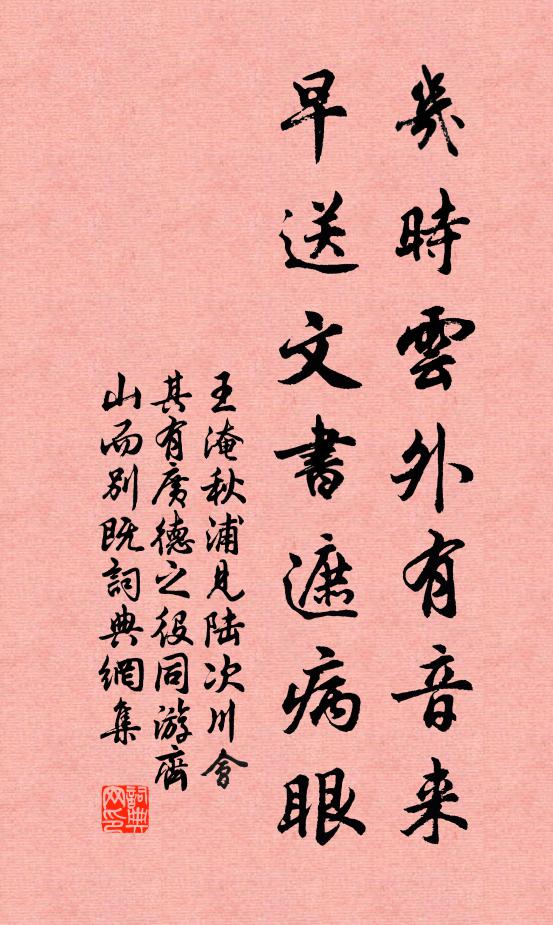 幾時雲外有音来
早送文書遮病眼
王淹秋浦見陆次川會
其有廣德之役同游齊
山而別既詞典網集
詞典網印